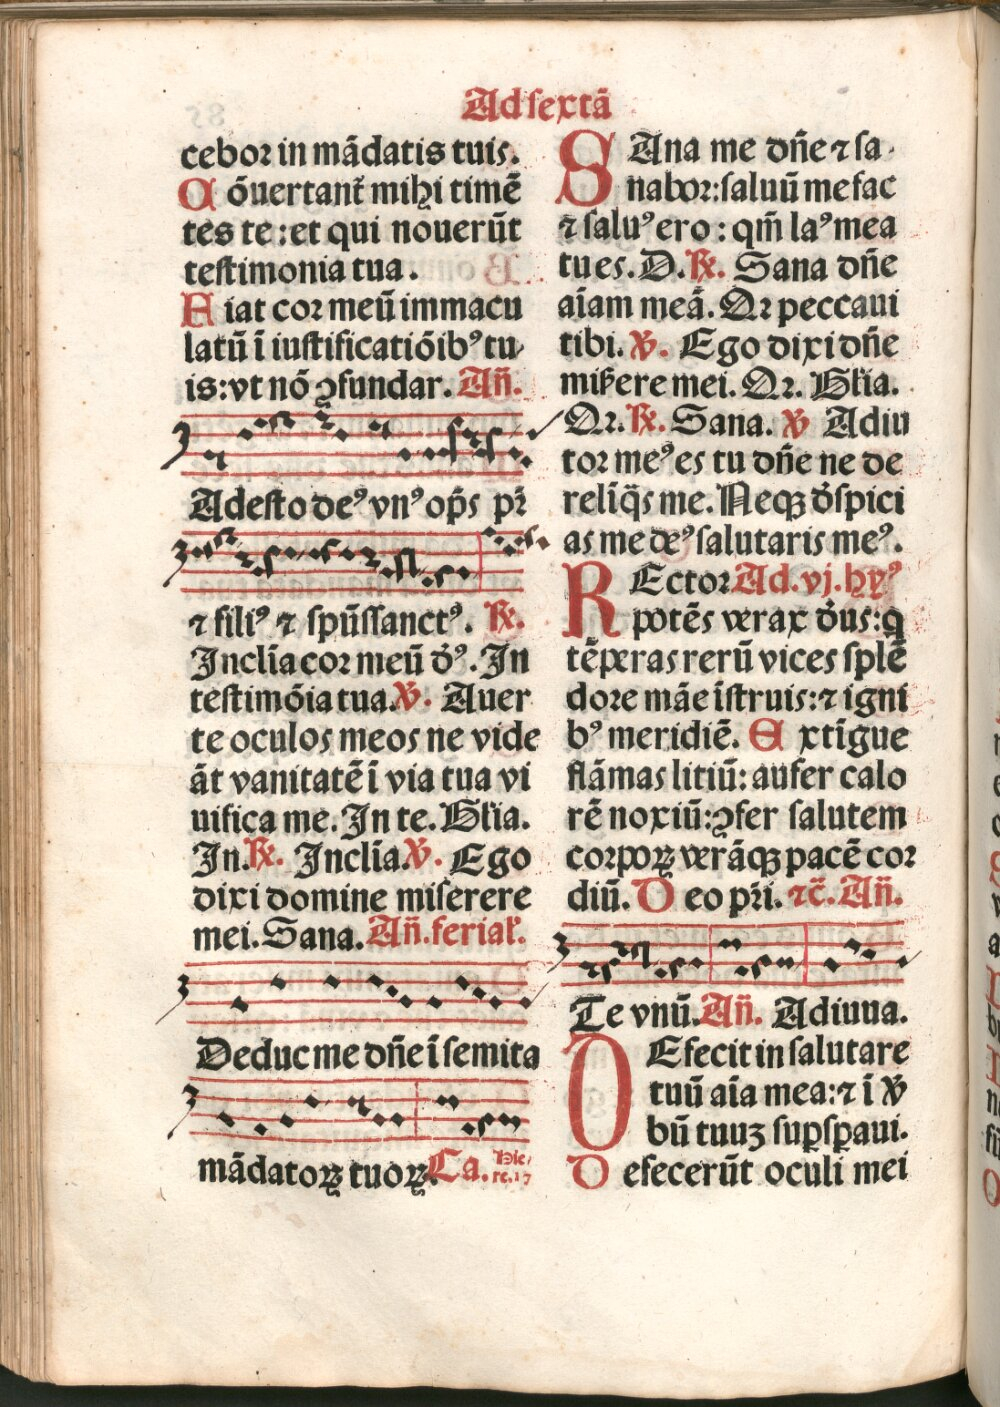 Ad sextā
cebor in mādatis tuis.
Cōuertant᷑ mihi timē
tes te: et qui nouerūt
testimonia tua.
Fiat cor meū immacu
latū ī iustificatiōibꝰ tu-
is: vt nō ꝯfundar. Añ.
Adesto deꝰ vnꝰ op̄s pr̄
⁊ filiꝰ ⁊ sp̄ūssanctꝰ. ℟.
Inclīa cor meū d̄ꝰ. In
testimōia tua. ℣. Auer
te oculos meos ne vide
āt vanitatē ī via tua vi
uifica me. In te. Gl̄ia.
In. ℟. Inclīa. ℣. Ego
dixi domine miserere
mei. Sana. Añ. ferial̄.
Deduc me dñe ī semita
mādatoꝝ tuoꝝ. Ca. Hie/
re. 17
SAna me dñe ⁊ sa-
nabor: saluū me fac
⁊ saluꝰ ero: qm̄ laꝰ mea
tu es. D. ℟. Sana dñe
aīam meā. Qꝛ peccaui
tibi. ℣. Ego dixi dñe
mis̄ere mei. Qꝛ. Gl̄ia.
Qꝛ. ℟. Sana. ℣ Adiu
tor meꝰ es tu dñe ne de
relīq̄s me. Neqꝫ d̄spici
as me deꝰ salutaris meꝰ.
REctor Ad .vj. hyꝰ
potēs verax d̄us: q̄
tēperas rerū vices splē
dore māe īstruis: ⁊ igni
bꝰ meridiē. Extīgue
flāmas litiū: aufer calo
rē noxiū: ꝯfer salutem
corpoꝝ verāqꝫ pacē cor
diū. Deo pr̄i. ⁊c̄. Añ.
Te vnū. Añ. Adiuua.
DEfecit in salutare
tuū aīa mea: ⁊ ī ℣
bū tuuꝫ suꝑsꝑaui.
Defecerūt oculi mei